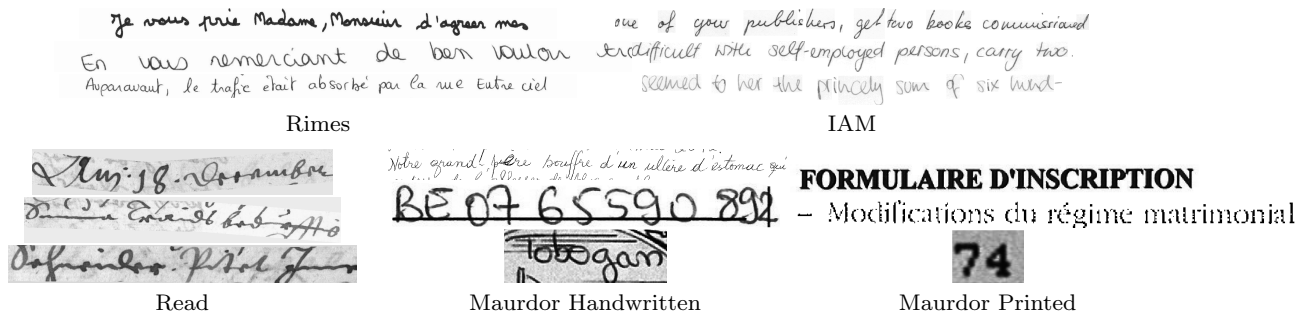 Je vous prie Madame, Monsieur d'agréer mes
En vous remerciant de ben vouloir
Auparavant, le trafic était absorbé par la rue Entre ciel
Rimes
one of your publishers, get two books commissioned
difficult with self-employed persons, carry two.
seemed to her the princely sum of six hund-
IAM
18. Decembris
Read
Notre grand père souffre d'un ulcère d'estomac qui
BE 07 65590 892
Tobogan
Maurdor Handwritten
FORMULAIRE D'INSCRIPTION
– Modifications du régime matrimonial
74
Maurdor Printed